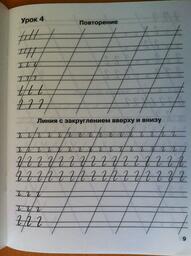 Урок 4
Повторение
Линия с закруглением вверху и внизу
9